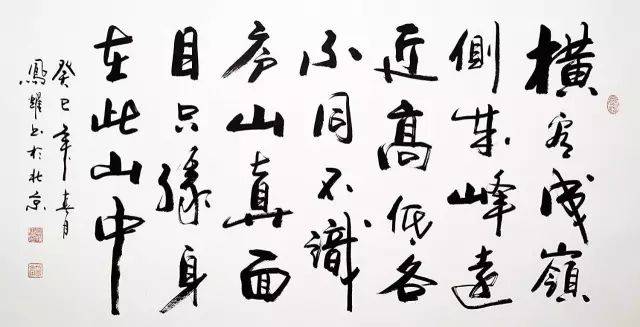 橫看成嶺
側成峰遠
近高低各
不同不識
庐山真面
目只緣身
在此山中
癸巳年春月
鳳耀书於北京